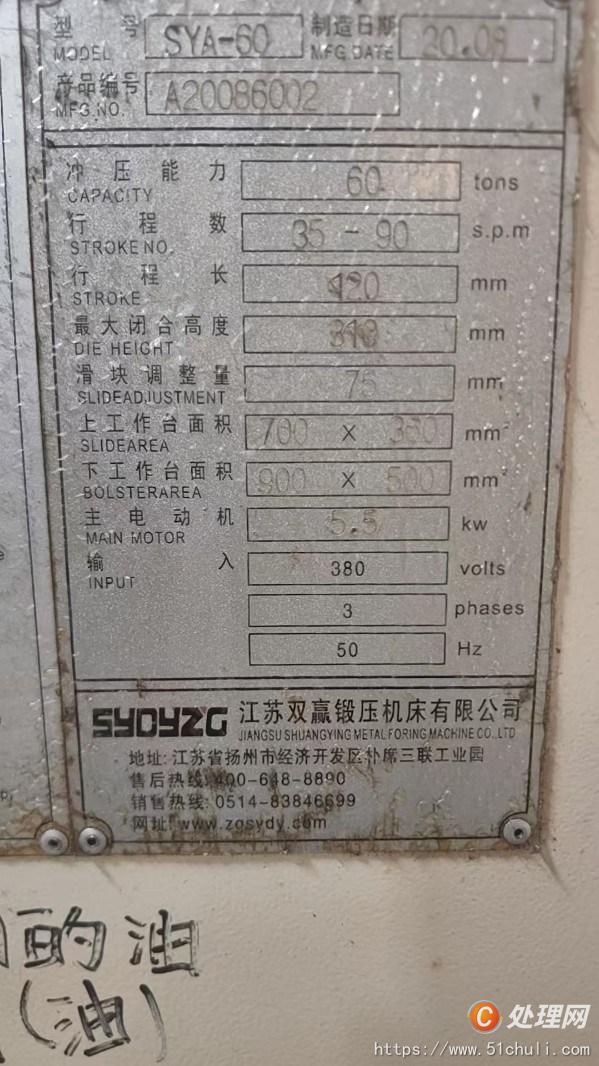 型 号 SYA-60 制造日期 20.08
MODEL MFG DATE
产品编号 A20086002
MFG.NO.
冲压能力 60 tons
CAPACITY
行程数 35 - 90 s.p.m
STROKE NO.
行程长 120 mm
STROKE
最大闭合高度 310 mm
DIE HEIGHT
滑块调整量 75 mm
SLIDEADJUSTMENT
上工作台面积 700 X 360 mm²
SLIDEAREA
下工作台面积 900 X 500 mm²
BOLSTERAREA
主电动机 5.5 kw
MAIN MOTOR
输入 380 volts
INPUT
3 phases
50 Hz
SYDYZG 江苏双赢锻压机床有限公司
JIANGSU SHUANGYING METAL FORING MACHINE CO.,LTD
地址: 江苏省扬州市经济开发区朴席三联工业园
售后热线: 400-648-8890
销售热线: 0514-83846699
网址: www.zgsydy.com
的油
(油)
C 处理网
https://www.51chuli.com